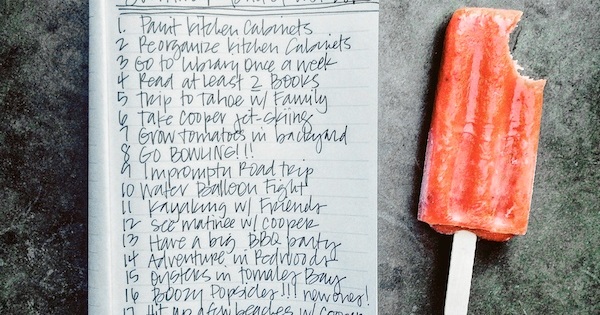 1. Paint kitchen Cabinets
2 Reorganize kitchen Cabinets
3 Go to library once a week
4 Read at least 2 Books
5 Trip to tahoe w/ Family
6 take Cooper jet-skiing
7 Grow tomatoes in backyard
8 GO BOWLING!!!
9 Impromptu Road trip
10 Water Balloon Fight
11 Kayaking w/ Friends
12 See matinee w/ Cooper
13 Have a big BBQ party
14 Adventure in Redwoods
15 Oysters in Tomales Bay
16 Boozy Popsicles!!! new ones!
17 Hit up a few beaches w/ Cooper